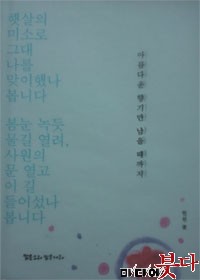 햇살의
미소로
그대
나를
맞이했나
봅니다
봄눈 녹듯
물길 열려,
사원의
문 열고
이 길
들어섰나
봅니다
아름다운 향기만 남을 때까지
붓다
미디어